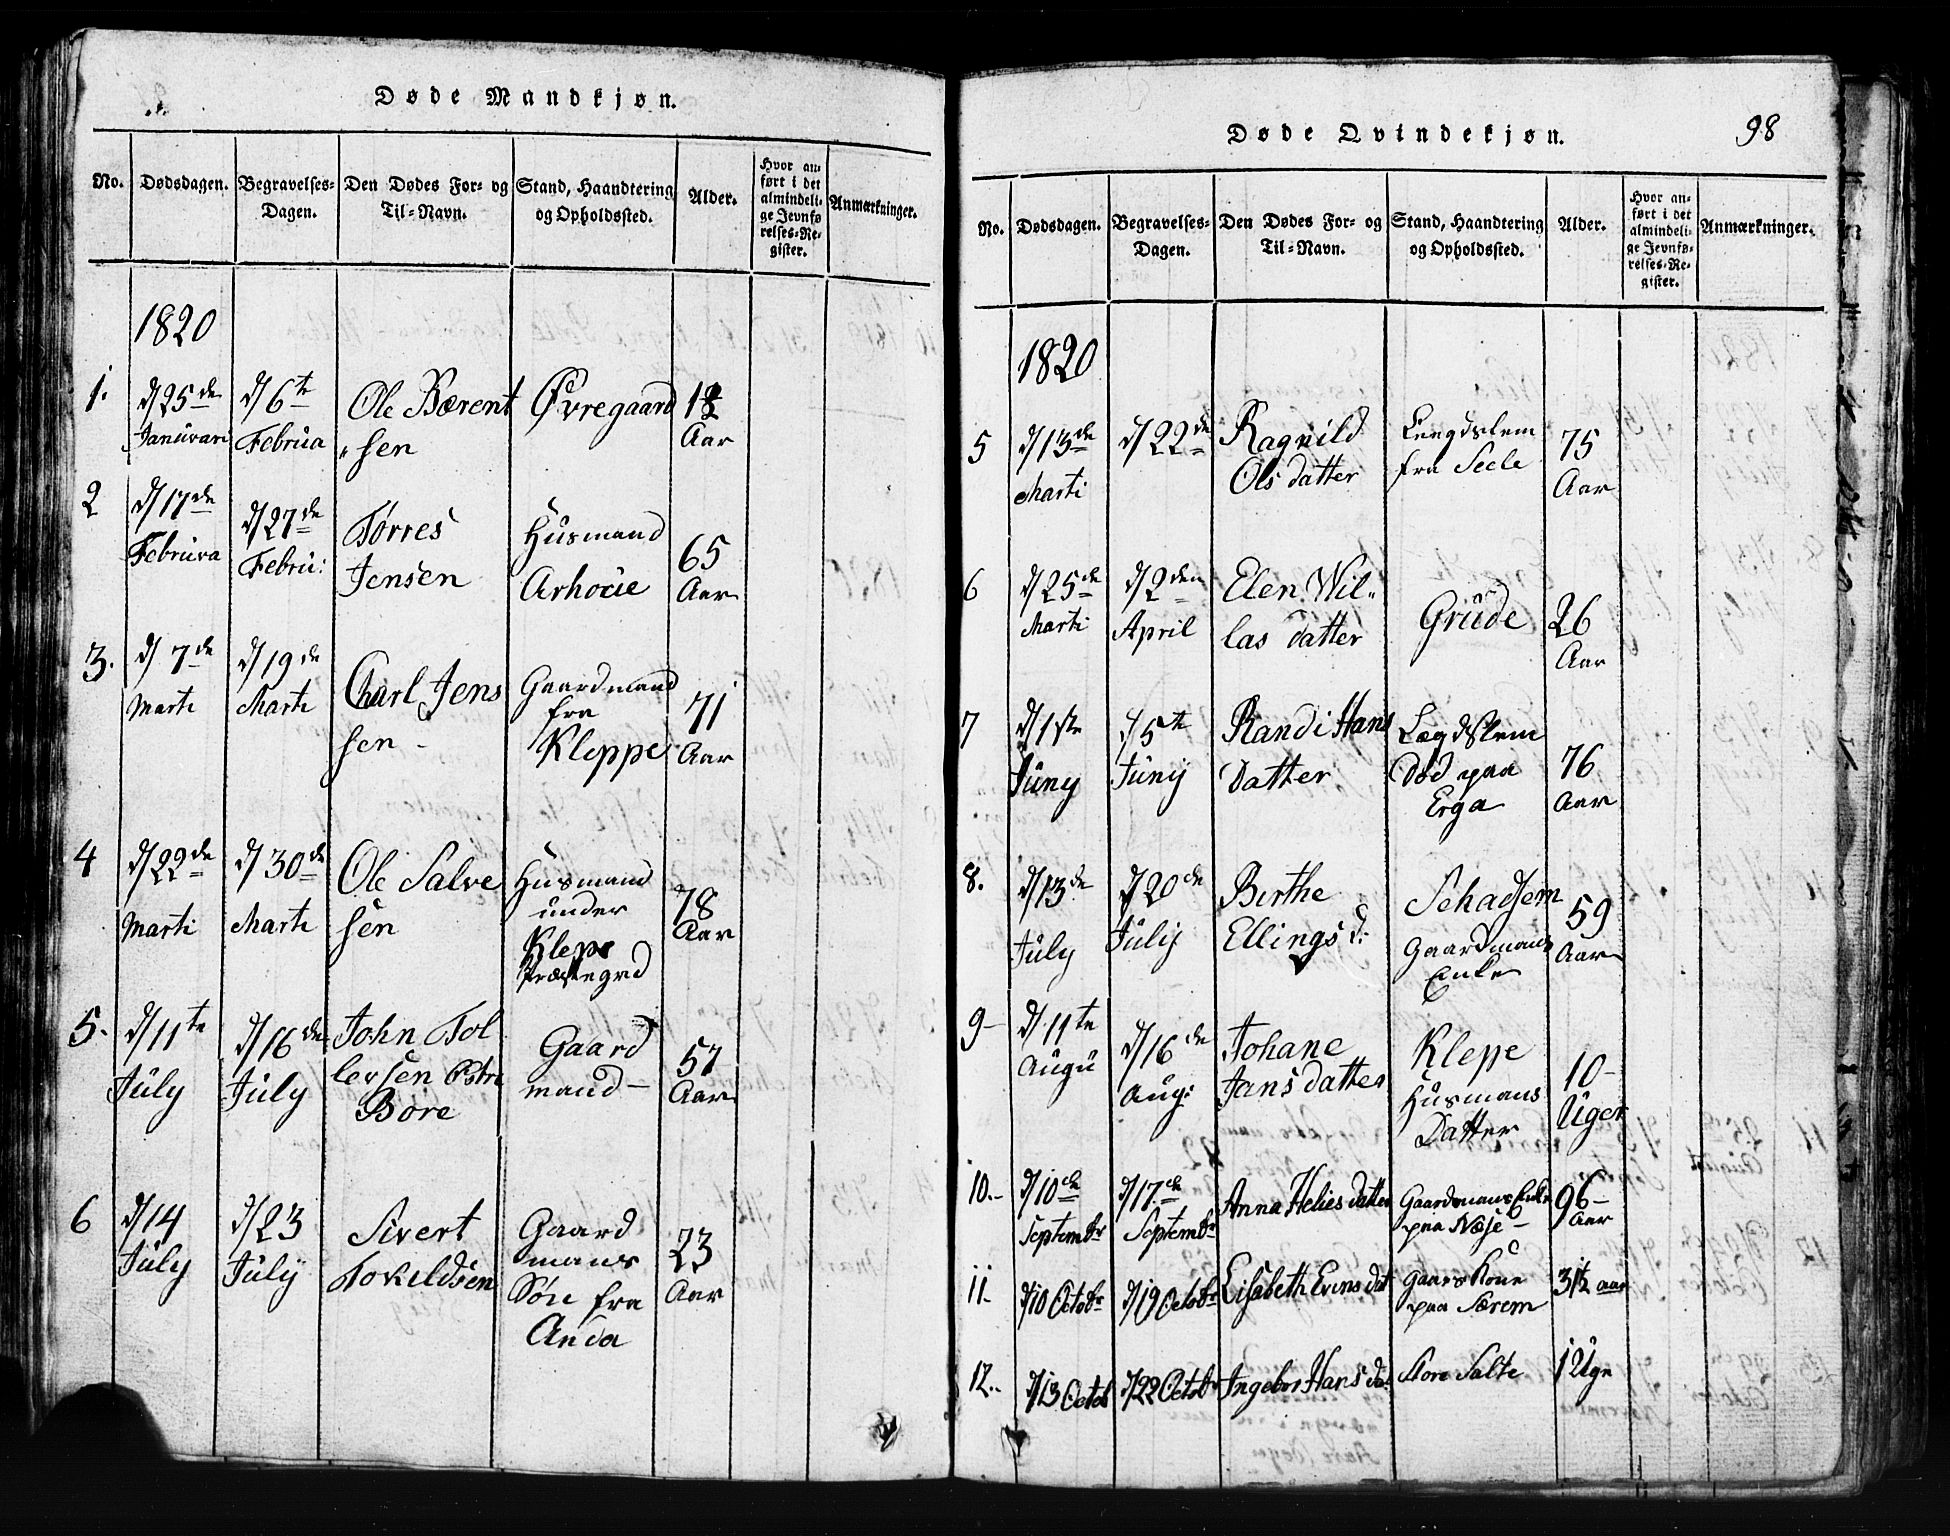 Døde Mandkjøn.
No.
Dødsdagen.
Begravelses-
Dagen.
Den Dødes For- og
Til-Navn.
Stand, Haandtering
og Opholdssted.
Alder.
Hvor an-
ført i det
almindeli-
ge Jevnfø
relses-Re-
gister.
Anmærkninger.
1820
1.
d/25de
Januvari
d/6te
Februa
Ole Bærent
sen
Øvregaard
Aar
2
d/17de
Februva
d/27de
Febru:
Tørres
Jensen
Husmand
Arhoue
65
Aar
3.
d/7de
Marti
d/19de
Marti
Charl Jens
sen -
Gaardmand
fra
Kleppe
71
Aar
4
d/22de
Marti
d/30de
Marti
Ole Salve
sen
Husmand
under
Klepe
Præstegrd
78
Aar
5.
d/11te
July
d/16de
July
John Tol
lersen Østre
Bore
Gaard
mand -
57
Aar
6
d/14
July
d/23
July
Sivert
Tokildsen
Gaard
mans
Søn fra
Anda
23
Aar
Døde Qvindekjøn.
98
No.
Dødsdagen.
Begravelses-
Dagen.
Den Dødes For- og
Til-Navn.
Stand, Haandtering
og Opholdssted.
Alder.
Hvor an-
ført i det
almindeli-
ge Jevnfø-
relses-Re-
gister.
Anmærkninger.
1820
5
d/13de
Marti
d/22de
Ragnild
Ols datter
Leegdslem
fra Seele
75
Aar
6
d/25de
Marti
d/2den
April
Elen Wil-
las datter
Grude
26
Aar
7
d/1ste
Juny
d/5te
Juny
Randi Hans
Datter
Lægdslem
død paa
Erga
76
Aar
8.
d/13de
July
d/20de
July
Birthe
Ellings d:
Schadsem
Gaardmans
Enke
59
Aar
9-
d/11te
Augu
d/16de
Aug:
Johane
Jansdatter
Kleppe
Husmans
Datter
10-
Uger
10.-
d/10de
Septembr
d/17de
Septembr
Anna Helies datter
Gaardmans Enke
paa Næse -
96-
Aar
11-
d/10 Octobr
d/19 Octobr
Elisabeth Evens dat
Gaards Kone
paa Særem
31½ aar
12.-
d/13 Octob
d/22 Octobr
Ingebor Hans dat
Store Salte
1 Uge